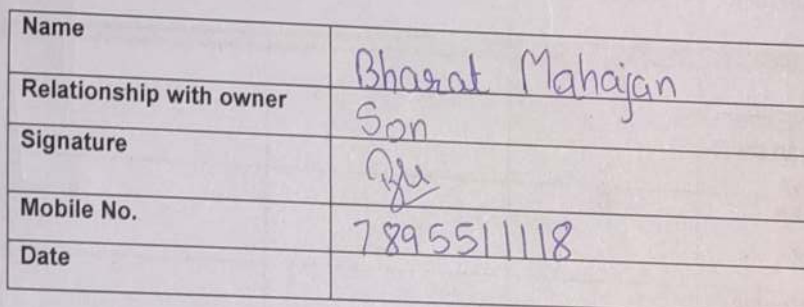 Name Bharat Mahajan
Relationship with owner Son
Signature
Mobile No. 7895511118
Date